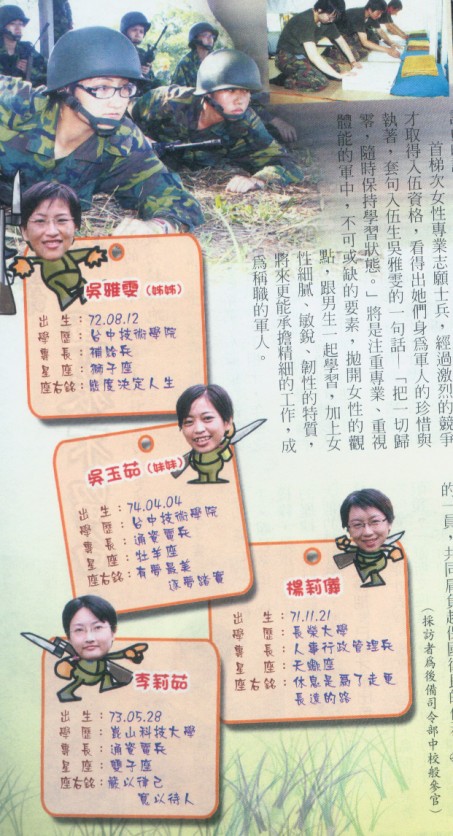 首梯次女性專業志願士兵，經過激烈的競爭
才取得入伍資格，看得出她們身為軍人的珍惜與
執著，套句入伍生吳雅雯的一句話—「把一切歸
零，隨時保持學習狀態。」將是注重專業、重視
體能的軍中，不可或缺的要素，拋開女性的觀
點，跟男生一起學習，加上女
性細膩、敏銳、韌性的特質，
將來更能承擔精細的工作，成
為稱職的軍人。
的一員，共同肩負起保國衛民的
（採訪者為後備司令部中校般參官）
吳雅雯（姊姊）
出生：72.08.12
學歷：台中技術學院
專長：補給兵
星座：獅子座
座右銘：態度決定人生
吳玉茹（妹妹）
出生：74.04.04
學歷：台中技術學院
專長：通資電兵
星座：牡羊座
座右銘：有夢最美
逐夢踏實
楊莉儀
出生：71.11.21
學歷：長榮大學
專長：人事行政管理兵
星座：天蠍座
座右銘：休息是為了走更
長遠的路
李莉茹
出生：73.05.28
學歷：崑山科技大學
專長：通資電兵
星座：雙子座
座右銘：嚴以律己
寬以待人